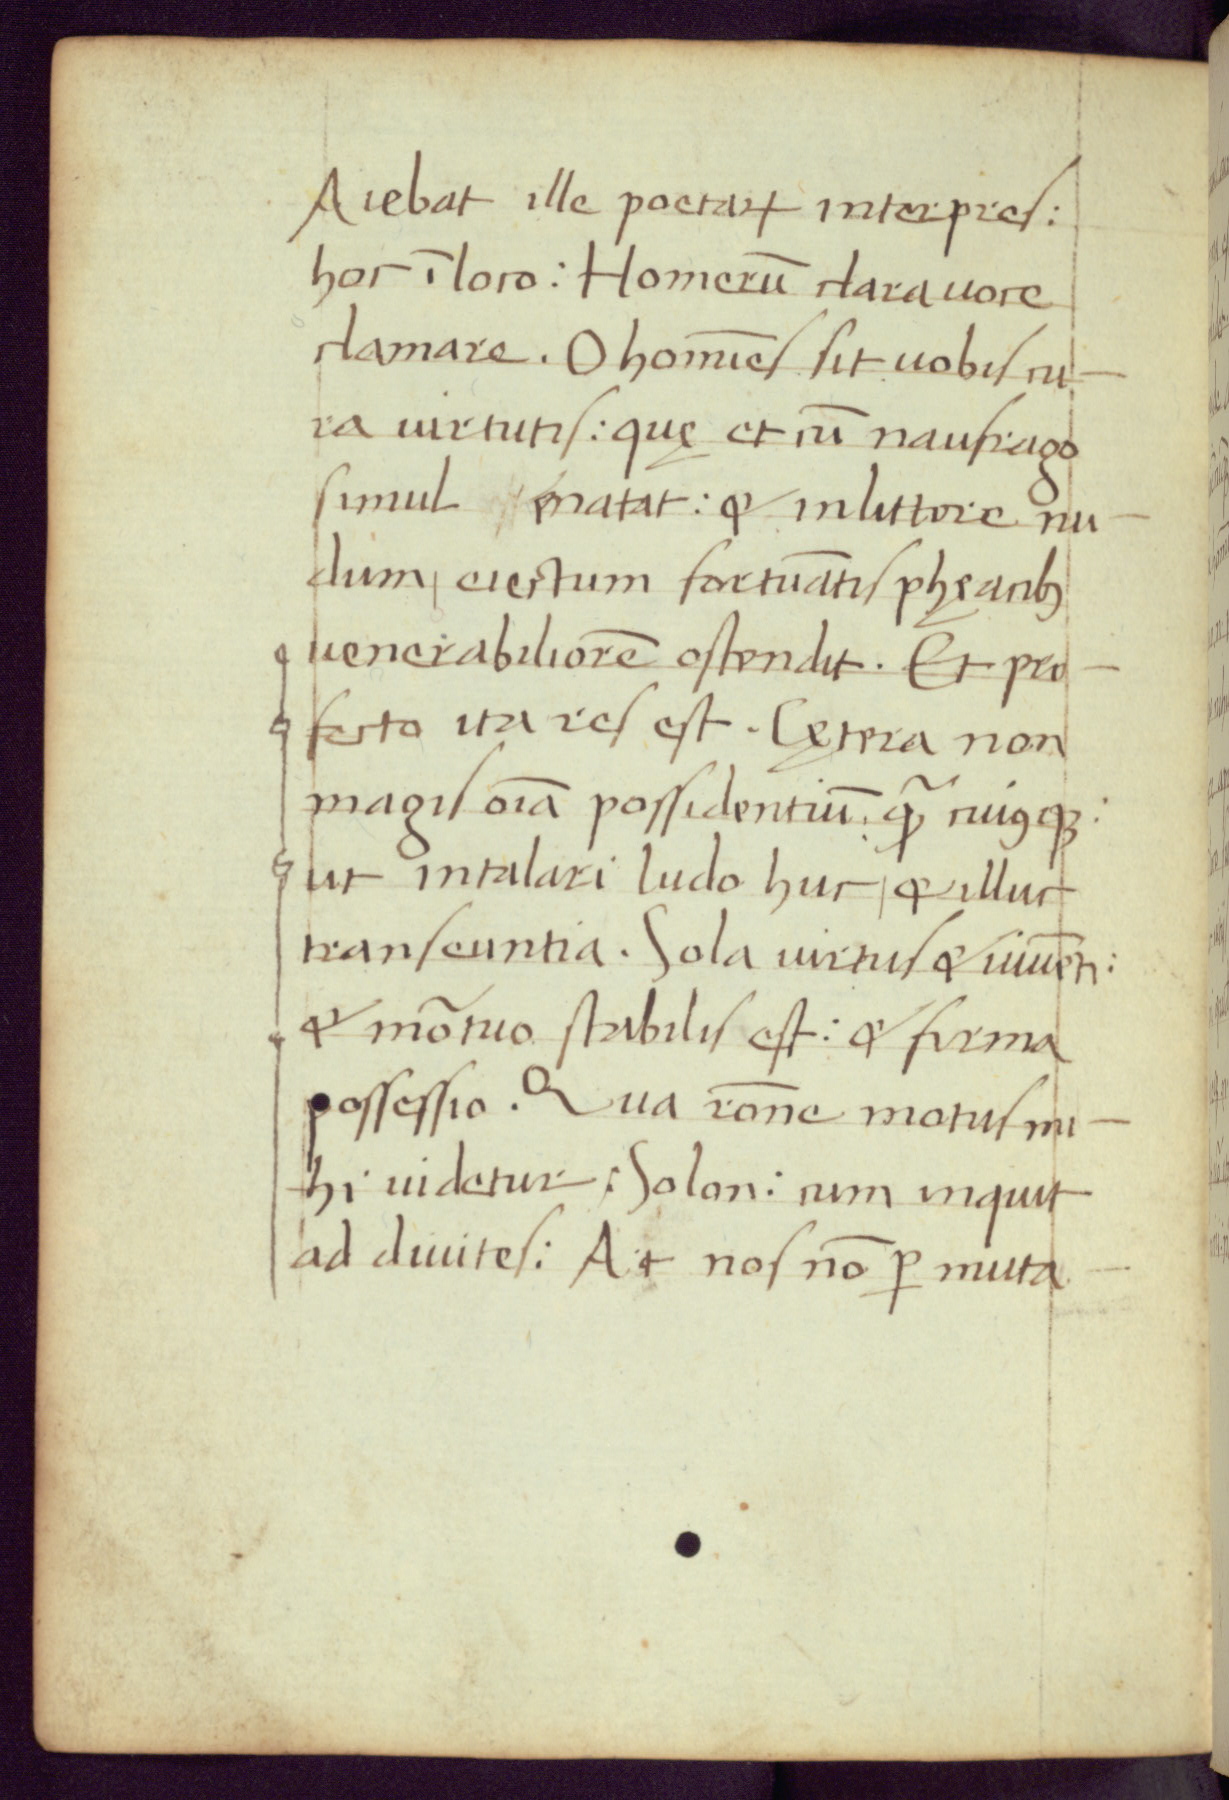 Aiebat ille poetaꝝ interpres:
hoc ī loco: Homerū clara uoce
clamare. O homīes sit uobis cu-
ra uirtutis: quę et cū naufrago
simul enatat: & in littore nu-
dum, eiectum fortunātis phęacibꝫ
uenerabiliorē ostendit. Et pro-
fecto ita res est. Cętera non
magis oīa possidentiū: q̄ȝ cuiusqꝫ:
ut in talari ludo huc, & illuc
transeuntia. Sola uirtus & uiuēti:
& mōtuo stabilis est: & firma
possessio. Qua rōne motus mi-
hi uidetur: Solon: cum inquit
ad diuites: At nos nō ꝑ muta-